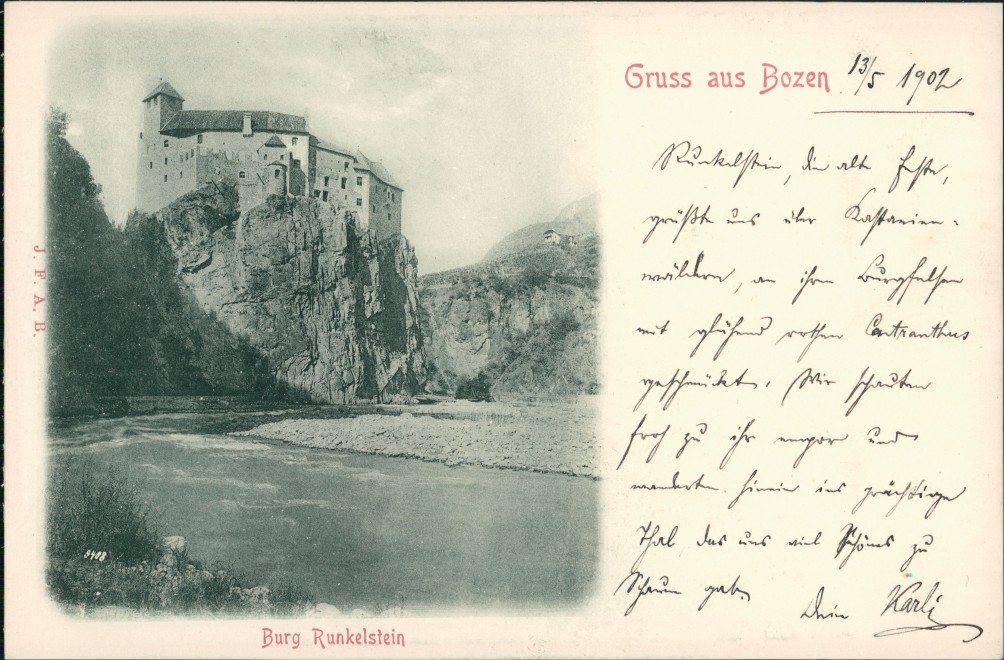 Gruss aus Bozen 13/5 1902
Runkelstein, die alte Feste,
grüßte uns über Kastanien-
wäldern, an ihren Burgfelsen
mit glühend rothen Centranthus
geschmückt. Wir schauten
froh zu ihr empor und
wanderten hinein ins prächtige
Thal, das uns viel Schönes zu
Schauen gab.
Dein Karli
J. F. A. B.
9408
Burg Runkelstein